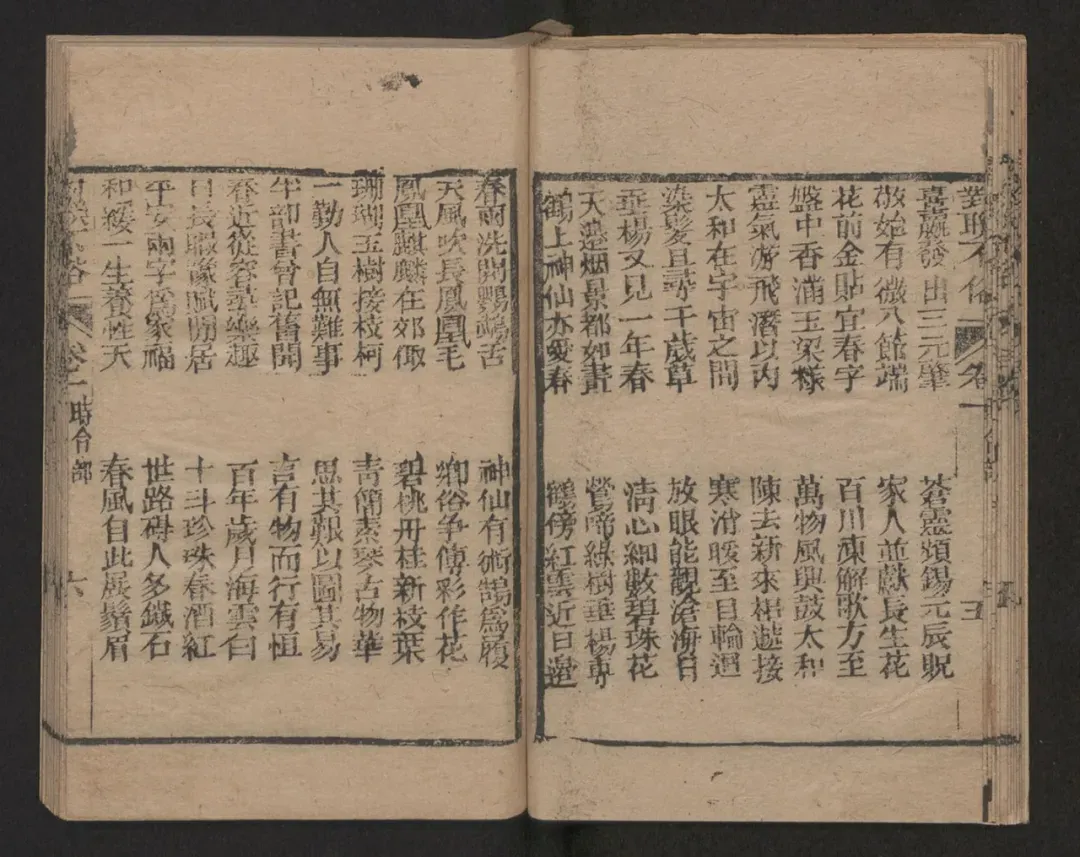 對聯不俗 卷一 五
喜蓂發出三元肇 蒼靈頻錫元辰貺
敬始有儀八節端 家人並獻長生花
花前金貼宜春字 百川凍解歌方至
盤中香滿玉梁糕 萬物風興鼓太和
靈氣游飛潛以內 陳去新來相遞接
太和在宇宙之間 寒消暖至日輪迴
染髮且尋千歲草 放眼能觀滄海日
垂楊又見一年春 清心細數碧珠花
天邊烟景都如畫 鶯啼綠樹垂楊專
鶴上神仙亦愛春 鶴傍紅雲近日邊
春雨洗開鸚鵡舌 神仙有術鵠爲履
天風吹長鳳凰毛 鄉俗爭傳彩作花
鳳凰麒麟在郊 碧桃丹桂新枝葉
珊瑚玉樹接枝柯 青簡素琴古物華
一勤人自無難事 思其艱以圖其易
半部書曾記舊聞 言有物而行有恒
春近從容尋樂趣 百年歲月海雲白
日長暇豫賦閒居 十斗珍珠春酒紅
平安兩字爲家福 世路母人多鐵石
和緩一生養性天 春風自此展鬚眉
對聯不俗 卷一 時令部 六